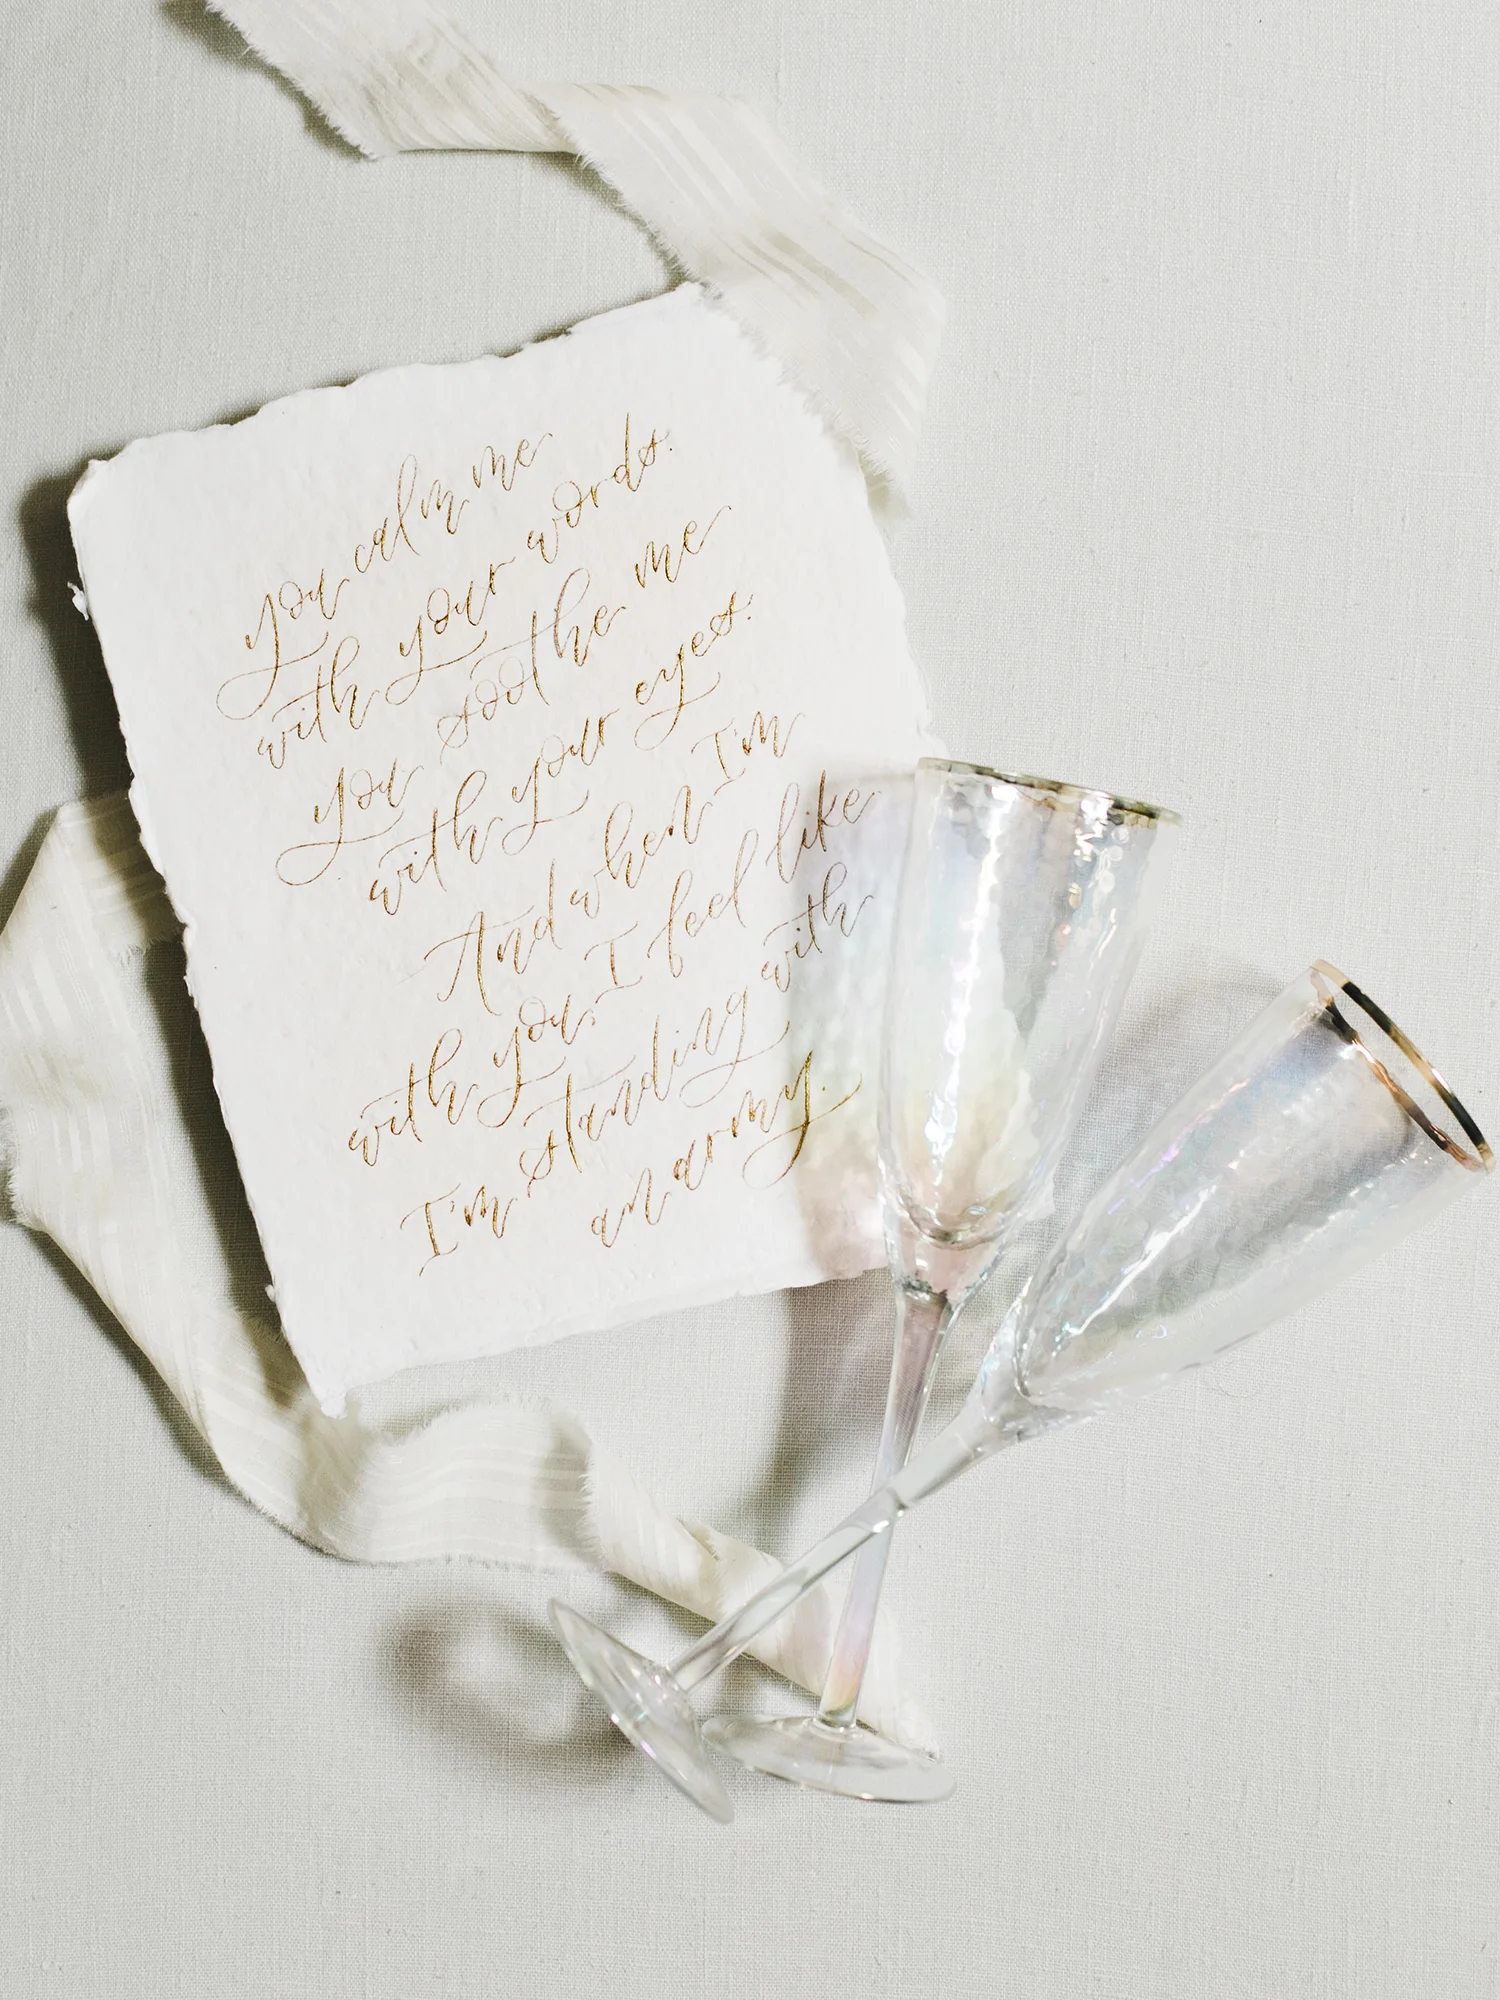 you calm me
with your words.
you soothe me
with your eyes.
And when I'm
with you, I feel like
I'm standing with
an army.